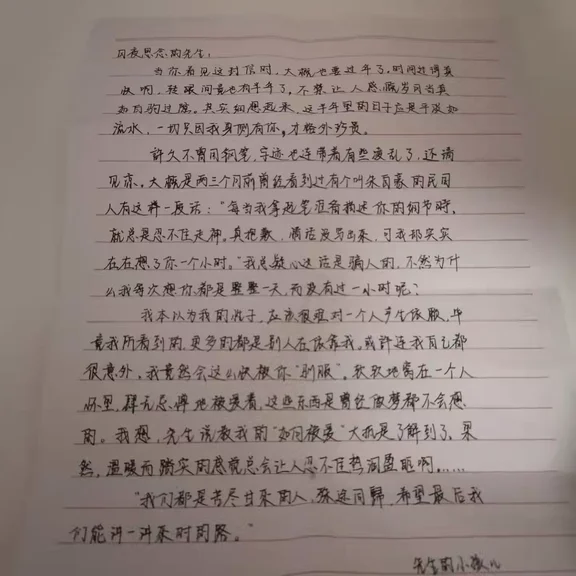 日夜思念的先生：
当你看见这封信时，大概也要过年了，时间过得真
快啊，转眼间竟也有半年了，不禁让人感叹岁月当真
如白驹过隙。其实细想起来，这半年里的日子应是平淡如
流水，一切只因我身侧有你，才格外珍贵。
许久不曾用钢笔，字迹也连带着有些凌乱了，还请
见谅。大概是两三个月前曾经看到过有个叫朱自豪的民国
人有这样一段话："每当我拿起笔准备描述你的细节时，
就总是忍不住走神。真抱歉，情话没写出来，可我却实实
在在想了你一个小时。"我总疑心这话是骗人的，不然为什
么我每次想你都是整整一天，而没有过一小时呢？
我本以为我的性子，应该很难对一个人产生依赖，毕
竟我所看到的，更多的都是别人在依靠我。或许连我自己都
很意外，我竟然会这么快被你"驯服"。软软地窝在一个人
怀里，肆无忌惮地被爱着，这些东西是曾经做梦都不会想
的。我想，先生说教我的"如何被爱"大抵是了解到了，果
然，温暖而踏实的感觉总会让人忍不住热泪盈眶啊……
"我们都是苦尽甘来的人，殊途同归，希望最后我
们能讲一讲来时的路。"
先生的小孩儿